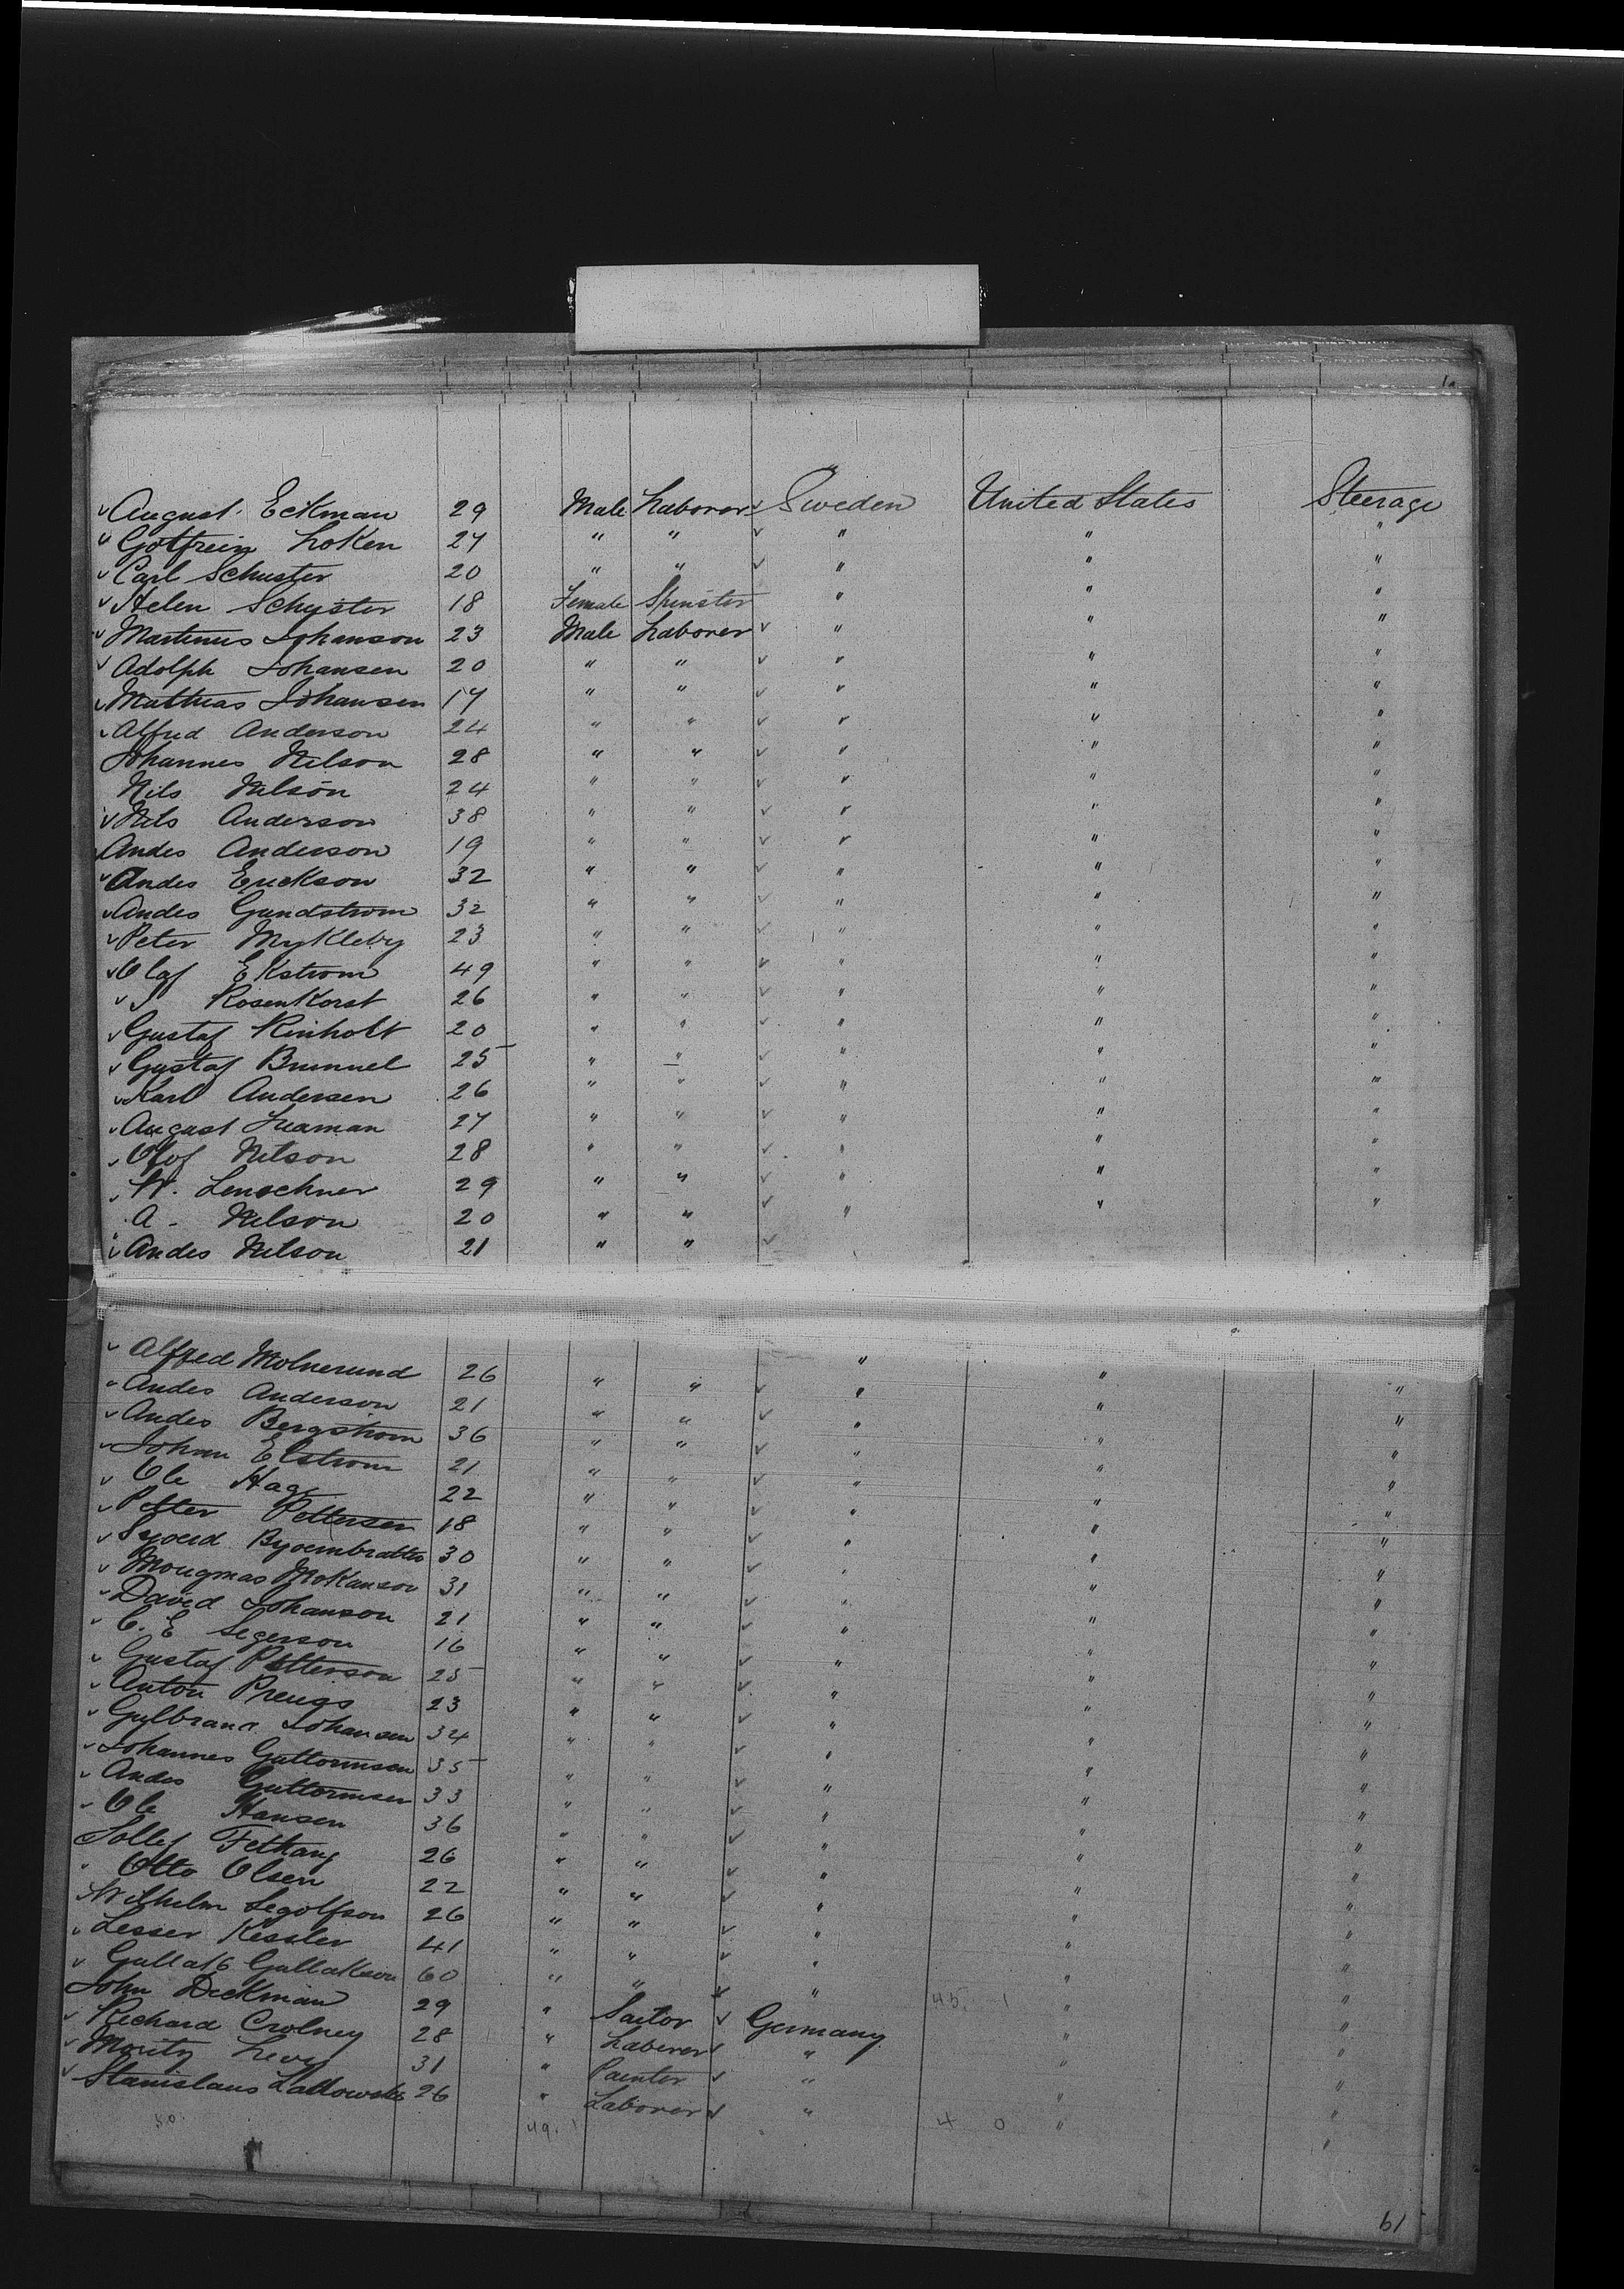 August Eckman 29 Male Laborer Sweden United States Steerage
Gotfrein Loken 27 " " " " "
Carl Schuster 20 " " " " "
Helen Schyster 18 Female Spinster " " "
Martinus Johanson 23 Male Laborer " " "
Adolph Johansen 20 " " " " "
Mathias Johansen 17 " " " " "
Alfred Anderson 24 " " " " "
Johannes Nilson 28 " " " " "
Nils Nilson 24 " " " " "
Nils Anderson 38 " " " " "
Andes Anderson 19 " " " " "
Andes Erickson 32 " " " " "
Andes Gundstrom 32 " " " " "
Peter Mykleby 23 " " " " "
Olaf Ekstrom 49 " " " " "
J Rosenkorst 26 " " " " "
Gustaf Rinholt 20 " " " " "
Gustaf Brunnel 25 " " " " "
Karl Andersen 26 " " " " "
August 27 " " " " "
Olof Nilson 28 " " " " "
W. Lenochner 29 " " " " "
A. Nilson 20 " " " " "
Andes Nilson 21 " "
Alfred Molnerund 26 " " " " "
Andes Anderson 21 " " " " "
Andes Bergstrom 36 " " " " "
Johan Elstrom 21 " " " " "
Ole Hage 22 " " " " "
Petter Pettersen 18 " " " " "
Syoerd Byoernbrattes 30 " " " " "
Mougmas Mokanson 31 " " " " "
David Johanson 21 " " " " "
C. E Segerson 16 " " " " "
Gustaf Petterson 25 " " " " "
Anton Preugs 23 " " " " "
Gulbrand Johansen 34 " " " " "
Johannes Guttormsen 35 " " " " "
Andes Guttormsen 33 " " " " "
Ole Hansen 36 " " " " "
Sollef Fethang 26 " " " " "
Otto Olsen 22 " " " " "
Wilhelm Segolfson 26 " " " " "
Lesser Kessler 41 " " " " "
Gullak G Gullakson 60 " " " " "
John Dickman 29 " Sailor Germany " "
Richard Crolney 28 " Laborer " " "
Moritz Levy 31 " Painter " " "
Stanislaus Latkowski 26 " Laborer " " "
50 49. 1 4 0
61